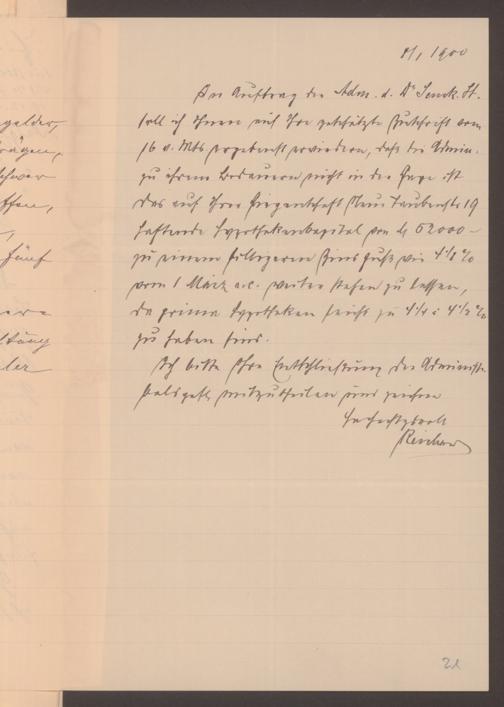 1900
Im Auftrag der Adm. d. Dr Senck. St.
soll ich Ihnen auf Ihre geschätzte Zuschrift vom
16 v. Mts ergebenst erwiedern, daß die Admin.
zu ihrem Bedauern nicht in der Lage ist
das auf Ihrer Liegenschaft Neue Taubenstr 19
haftende Hypothekenkapital von M 52000 –
zu einem billigeren Zinsfuß wie 4½ %
vom 1 März a.c. weiter stehen zu lassen,
da prima Hypotheken leicht zu 4¼ à 4½ %
zu haben sind.
Ich bitte Ihre Entschließung der Administr.
baldgefl. mitzutheilen und zeichne
Hochachtungsvoll
gelder,
rägen,
schwer
ffen,
fünf
ere
ltung
ler
21